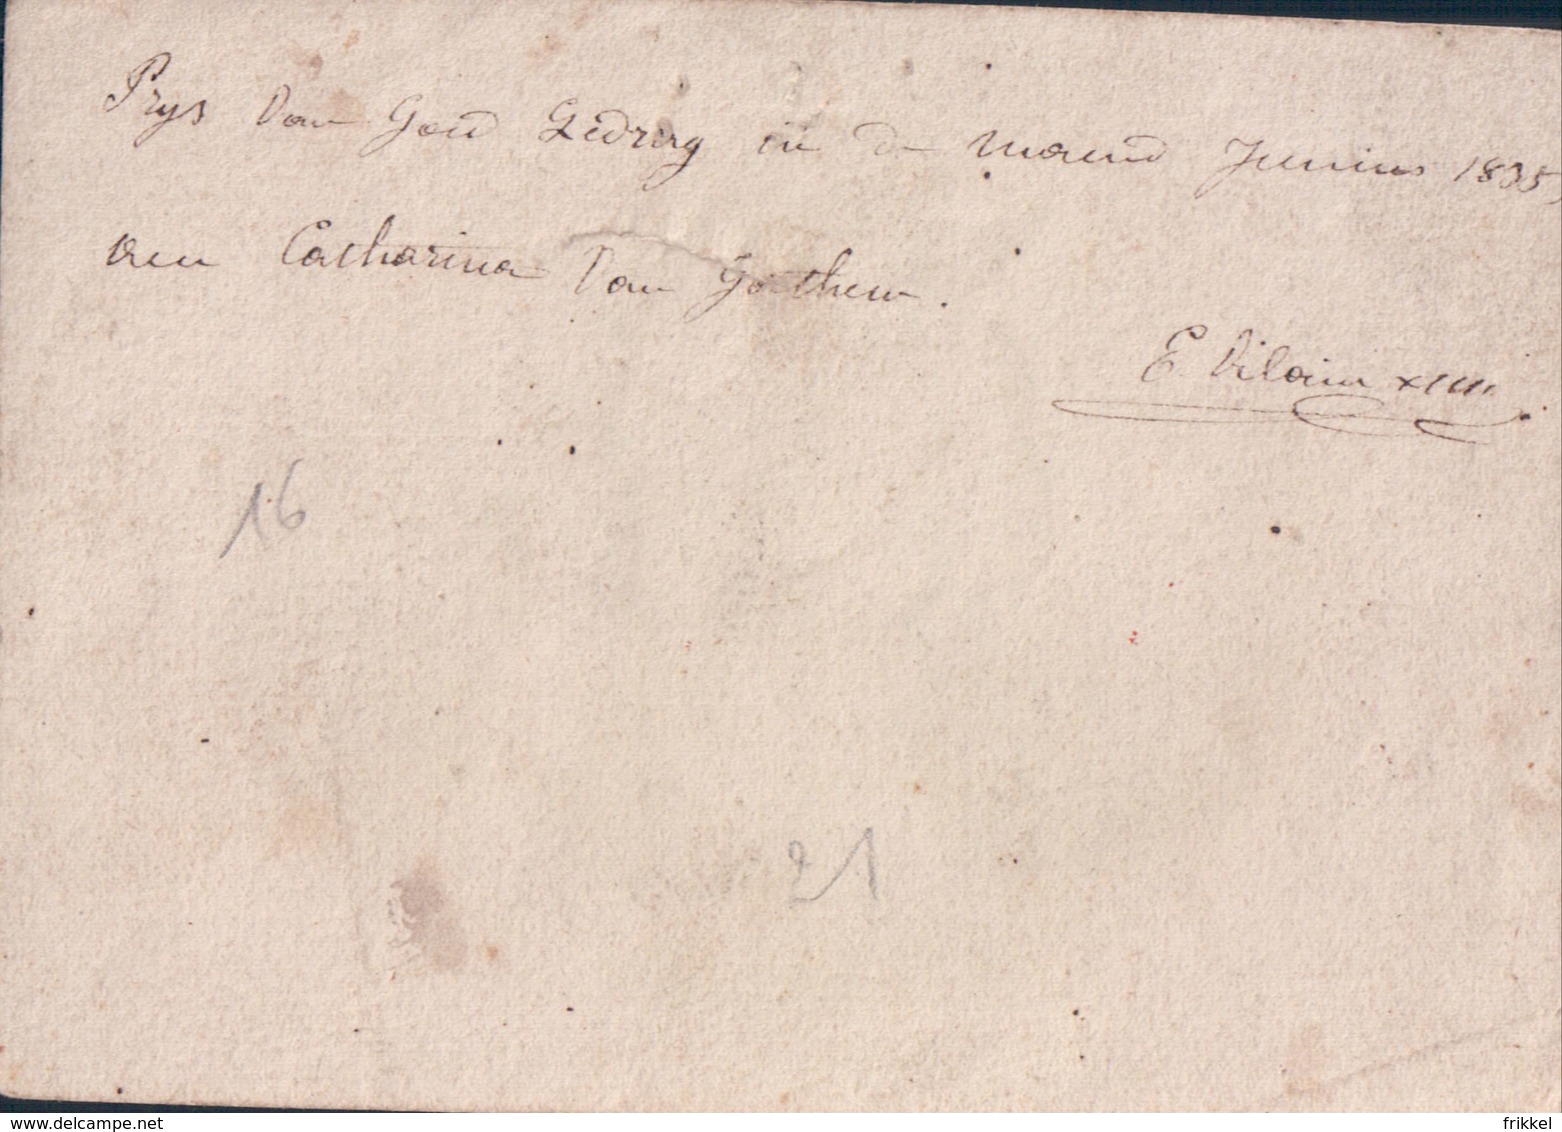 Prys van goed gedrag in de maend Junius 1835,
aen Catharina Van Goethem.
E. Vilain XIIII.
16
21
frikkel